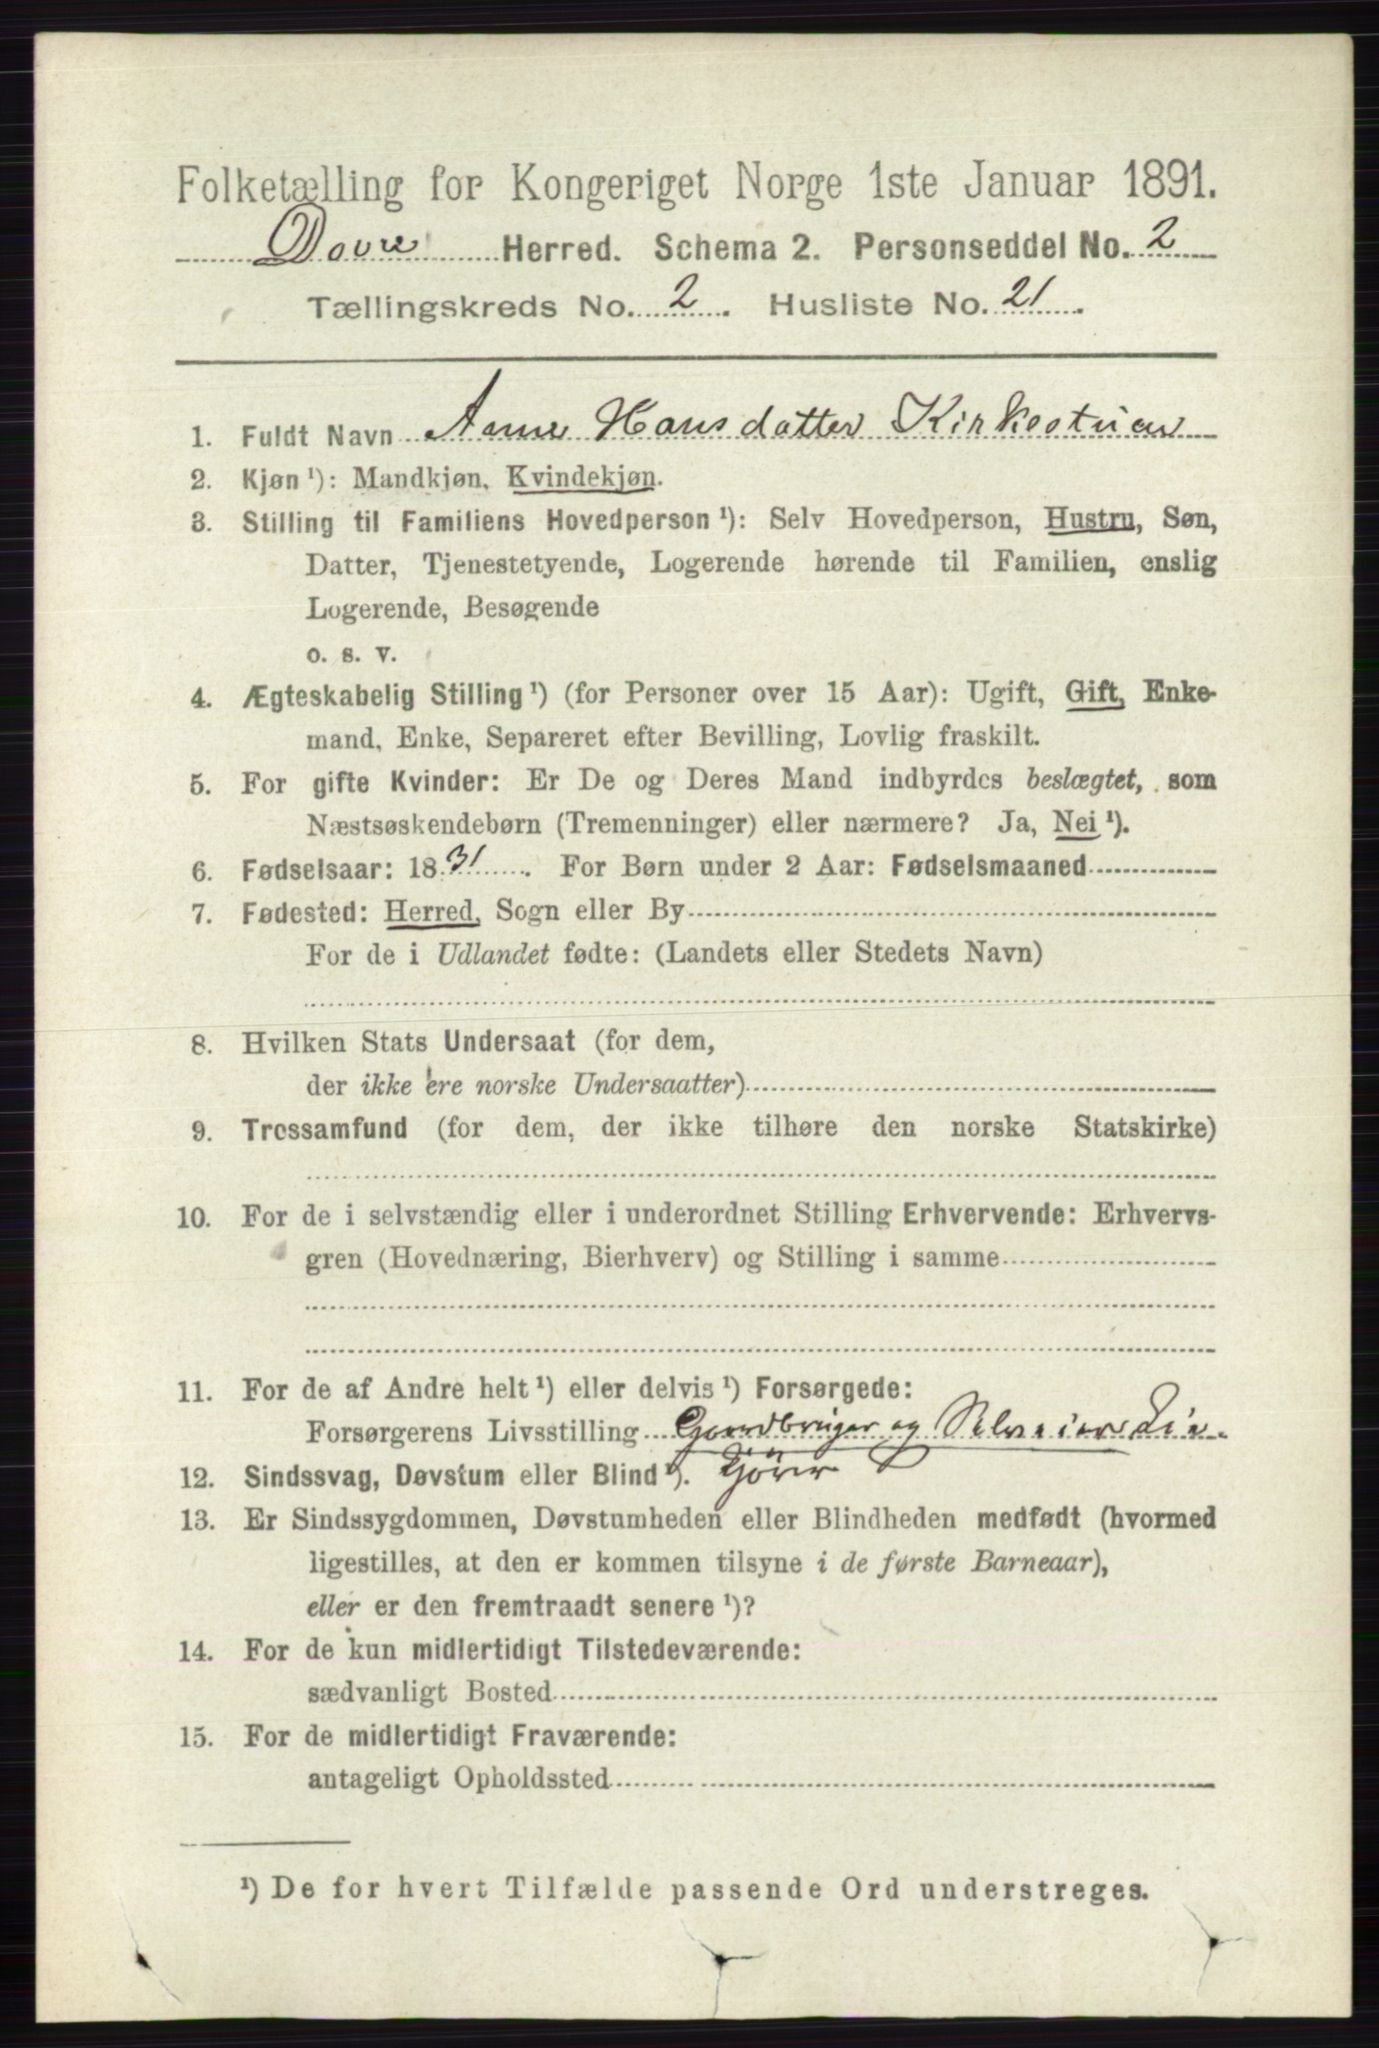 Folketælling for Kongeriget Norge 1ste Januar 1891.
Dovre Herred. Schema 2. Personseddel No. 2
Tællingskreds No. 2. Husliste No. 21.
1. Fuldt Navn Anne Hansdatter Kirkestuen
2. Kjøn ¹): Mandkjøn, Kvindekjøn.
3. Stilling til Familiens Hovedperson ¹): Selv Hovedperson, Hustru, Søn,
Datter, Tjenestetyende, Logerende hørende til Familien, enslig
Logerende, Besøgende
o. s. v.
4. Ægteskabelig Stilling ¹) (for Personer over 15 Aar): Ugift, Gift, Enke-
mand, Enke, Separeret efter Bevilling, Lovlig fraskilt.
5. For gifte Kvinder: Er De og Deres Mand indbyrdes beslægtet, som
Næstsøskendebørn (Tremenninger) eller nærmere? Ja, Nei ¹).
6. Fødselsaar: 1831. For Børn under 2 Aar: Fødselsmaaned
7. Fødested: Herred, Sogn eller By
For de i Udlandet fødte: (Landets eller Stedets Navn)
8. Hvilken Stats Undersaat (for dem,
der ikke ere norske Undersaatter)
9. Trossamfund (for dem, der ikke tilhøre den norske Statskirke)
10. For de i selvstændig eller i underordnet Stilling Erhvervende: Erhvervs-
gren (Hovednæring, Bierhverv) og Stilling i samme
11. For de af Andre helt ¹) eller delvis ¹) Forsørgede:
Forsørgerens Livsstilling Gaardbruger og Selveier
12. Sindssvag, Døvstum eller Blind ¹).
13. Er Sindssygdommen, Døvstumheden eller Blindheden medfødt (hvormed
ligestilles, at den er kommen tilsyne i de første Barneaar),
eller er den fremtraadt senere ¹)?
14. For de kun midlertidigt Tilstedeværende:
sædvanligt Bosted
15. For de midlertidigt Fraværende:
antageligt Opholdssted
¹) De for hvert Tilfælde passende Ord understreges.